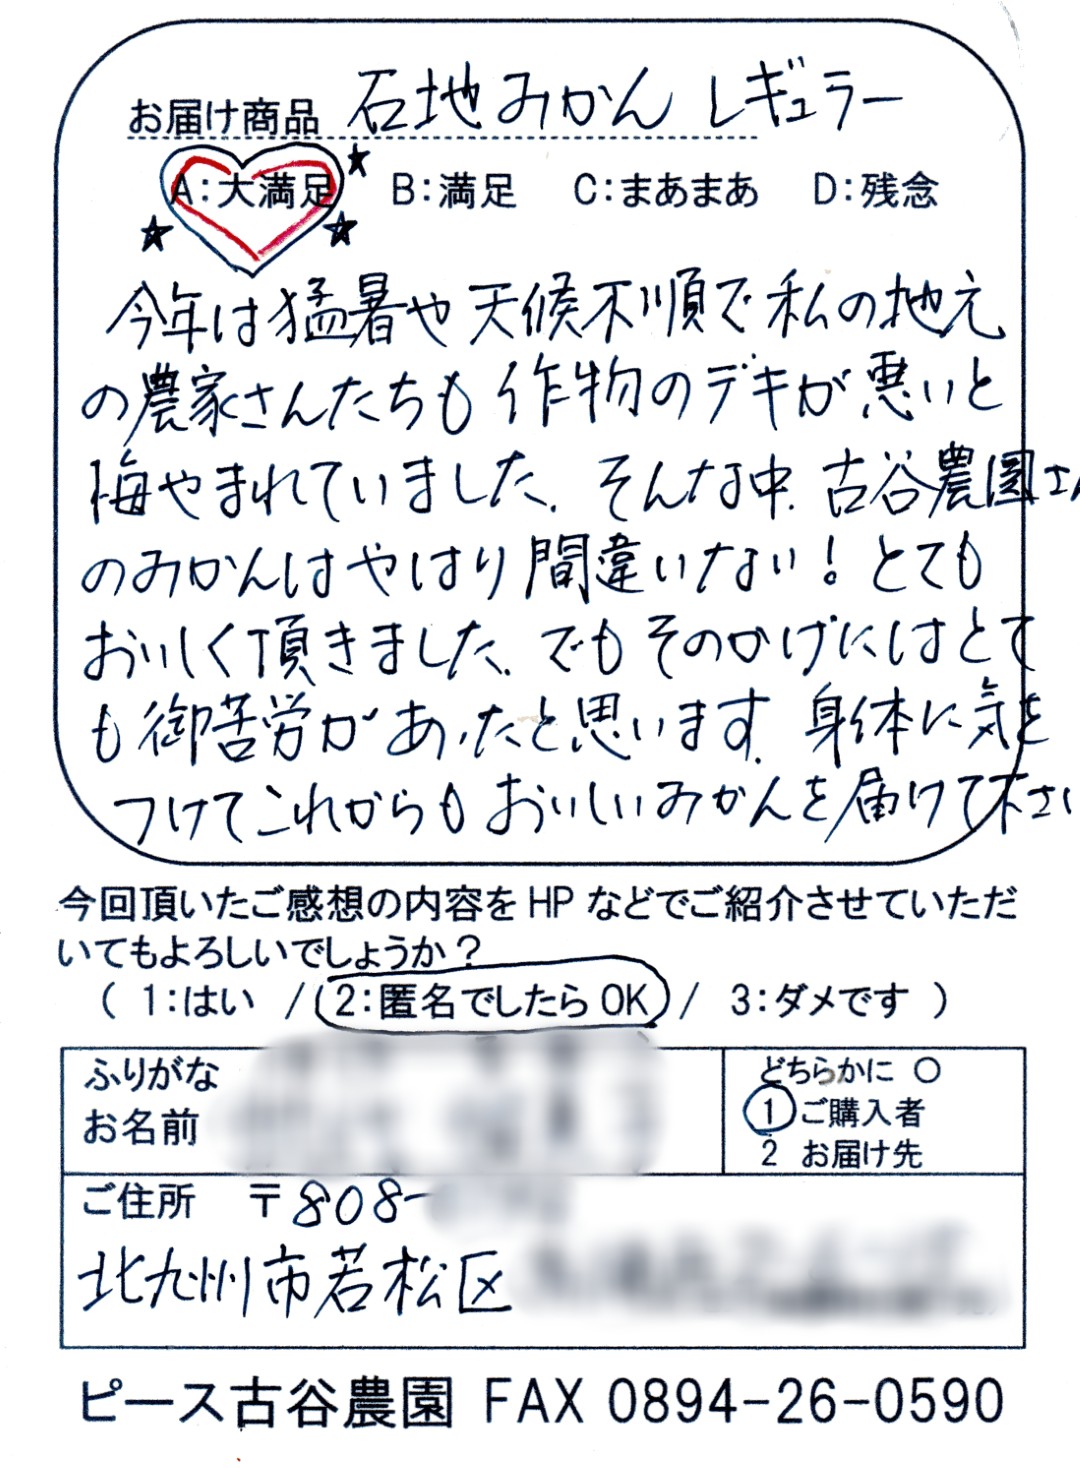 お届け商品 石地みかん レギュラー
A：大満足 B：満足 C：まあまあ D：残念
今年は猛暑や天候不順で私の地元
の農家さんたちも作物のデキが悪いと
悔やまれていました。そんな中、古谷農園さん
のみかんはやはり間違いない！とても
おいしく頂きました。でもそのかげにはとて
も御苦労があったと思います。身体に気を
つけてこれからもおいしいみかんを届けて下さい
今回頂いたご感想の内容をHPなどでご紹介させていただ
いてもよろしいでしょうか？
（ 1：はい / 2：匿名でしたらOK / 3：ダメです ）
ふりがな
お名前
どちらかに ○
1 ご購入者
2 お届け先
ご住所 〒808-
北九州市若松区
ピース古谷農園 FAX 0894-26-0590